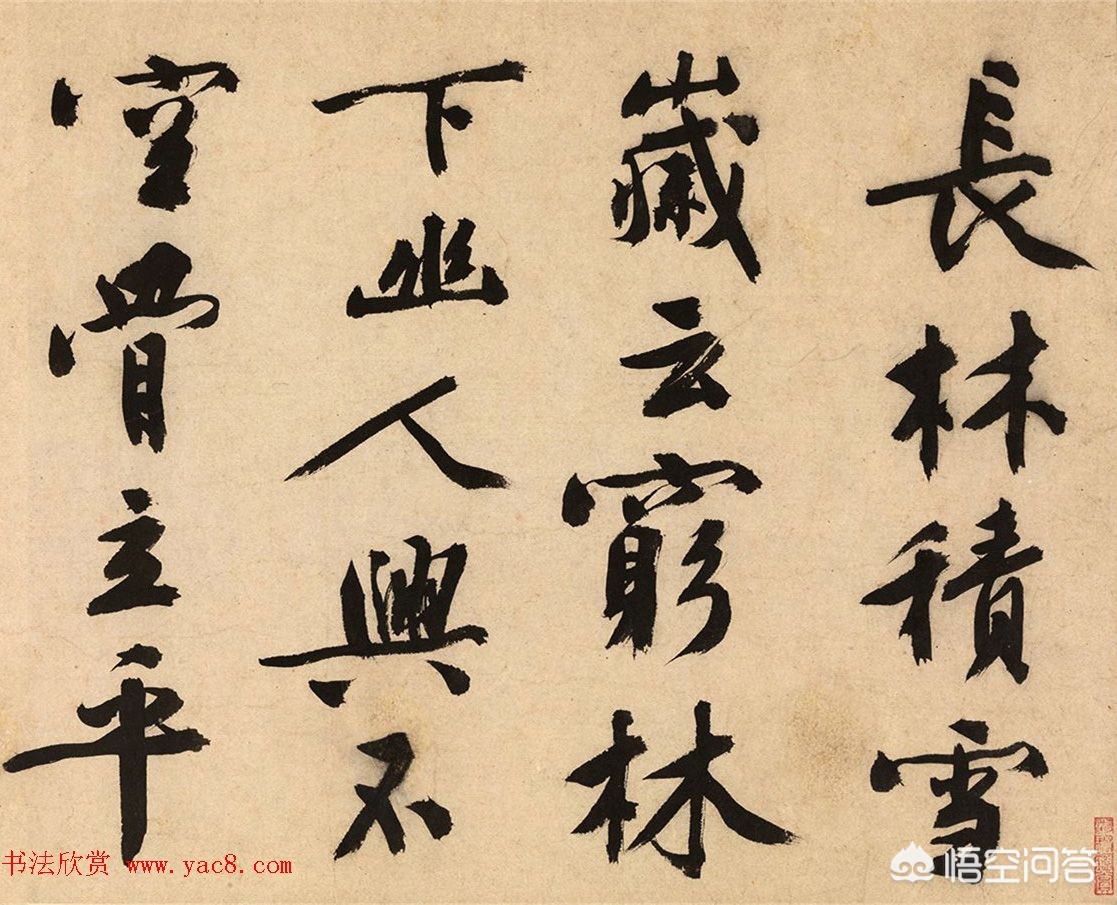 長林積雪
歲云窮林
下幽人興不
空骨立平
书法欣赏 www.yac8.com
悟空问答